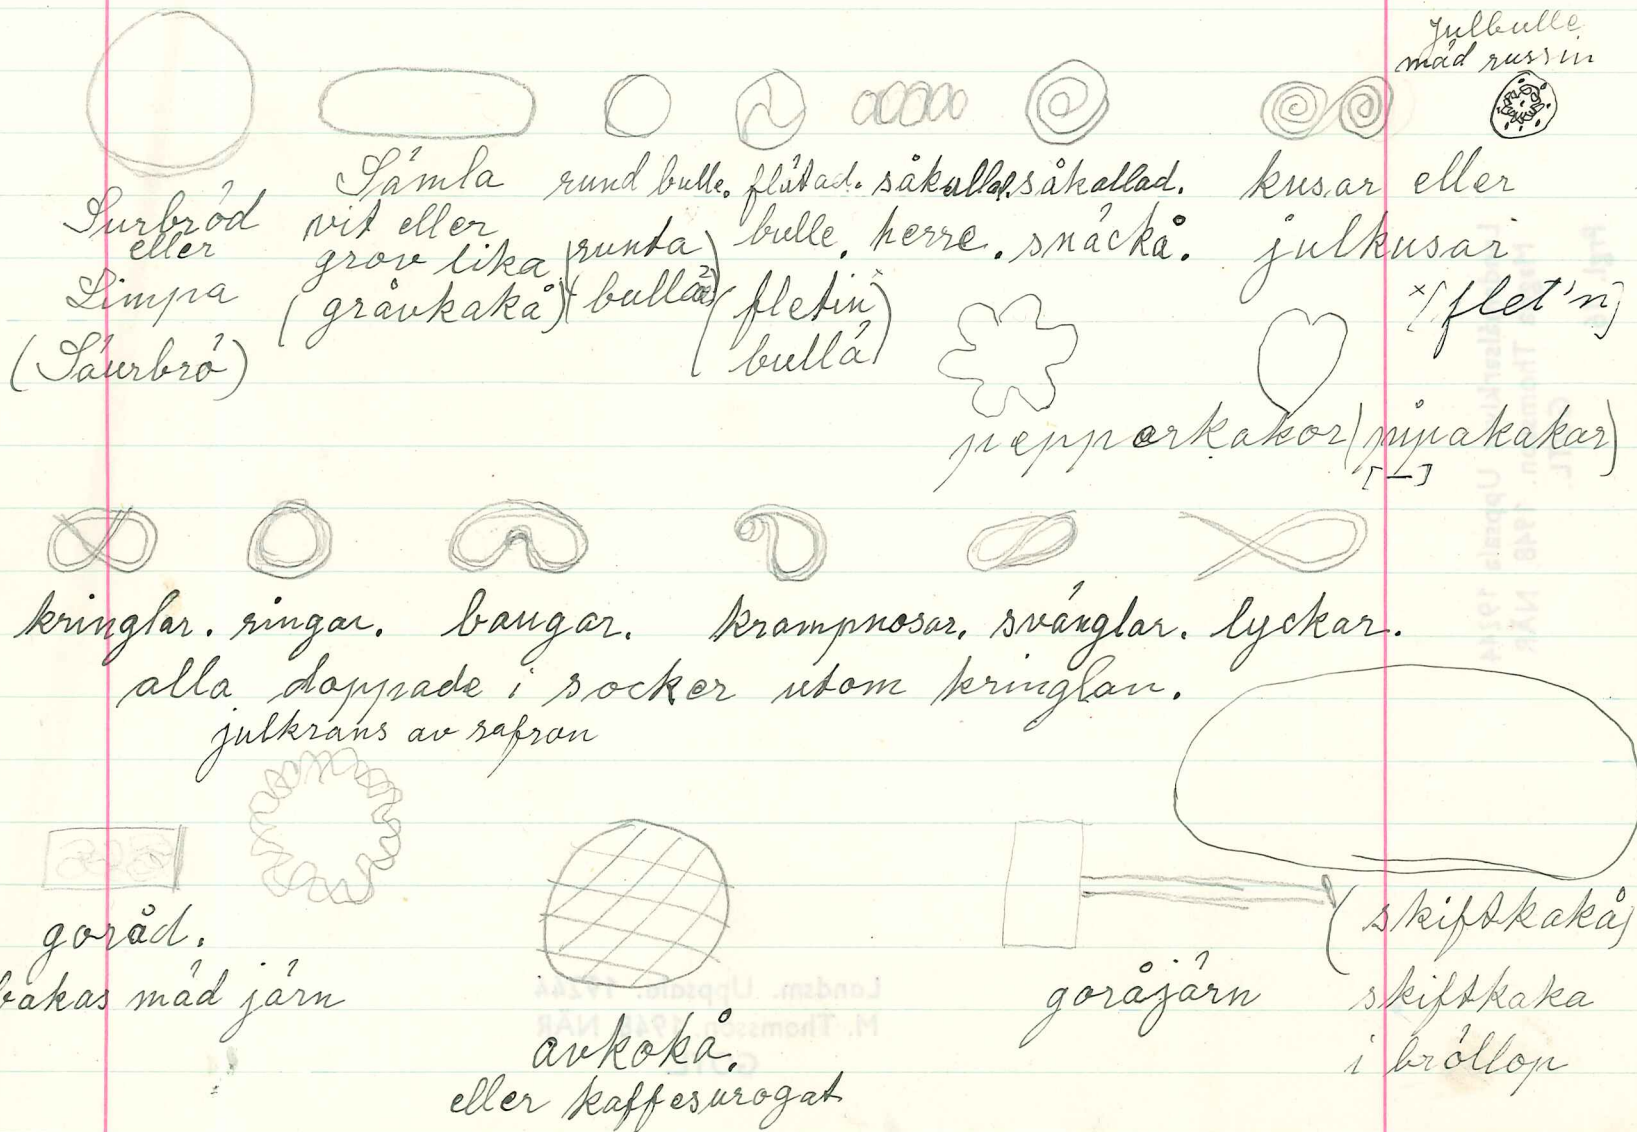 Julbulle
mäd russin
Surbröd
eller
Limpa
(Säurbrö)
Sämla
vit eller
grov lika
(gråvkakå)
rund bulle.
(runda
bullä)
flätad.
bulle.
(fletin
bullä)
såkallad.
herre.
såkallad.
snäckå.
kusar eller
julkusar
×/[flet'n]
pepparkakor (pipakakar)
[–]
kringlar. ringar. baugar. krampnosar. svänglar. lyckar.
alla doppade i socker utom kringlan.
julkrans av safran
goråd.
bakas mäd järn
avkokå.
eller kaffesurogat
goråjärn
(skiftkakå)
skiftkaka
i bröllop
Landsm. Uppsala. 19244
M. Thomsson. 1948. NÄR
GOTL.